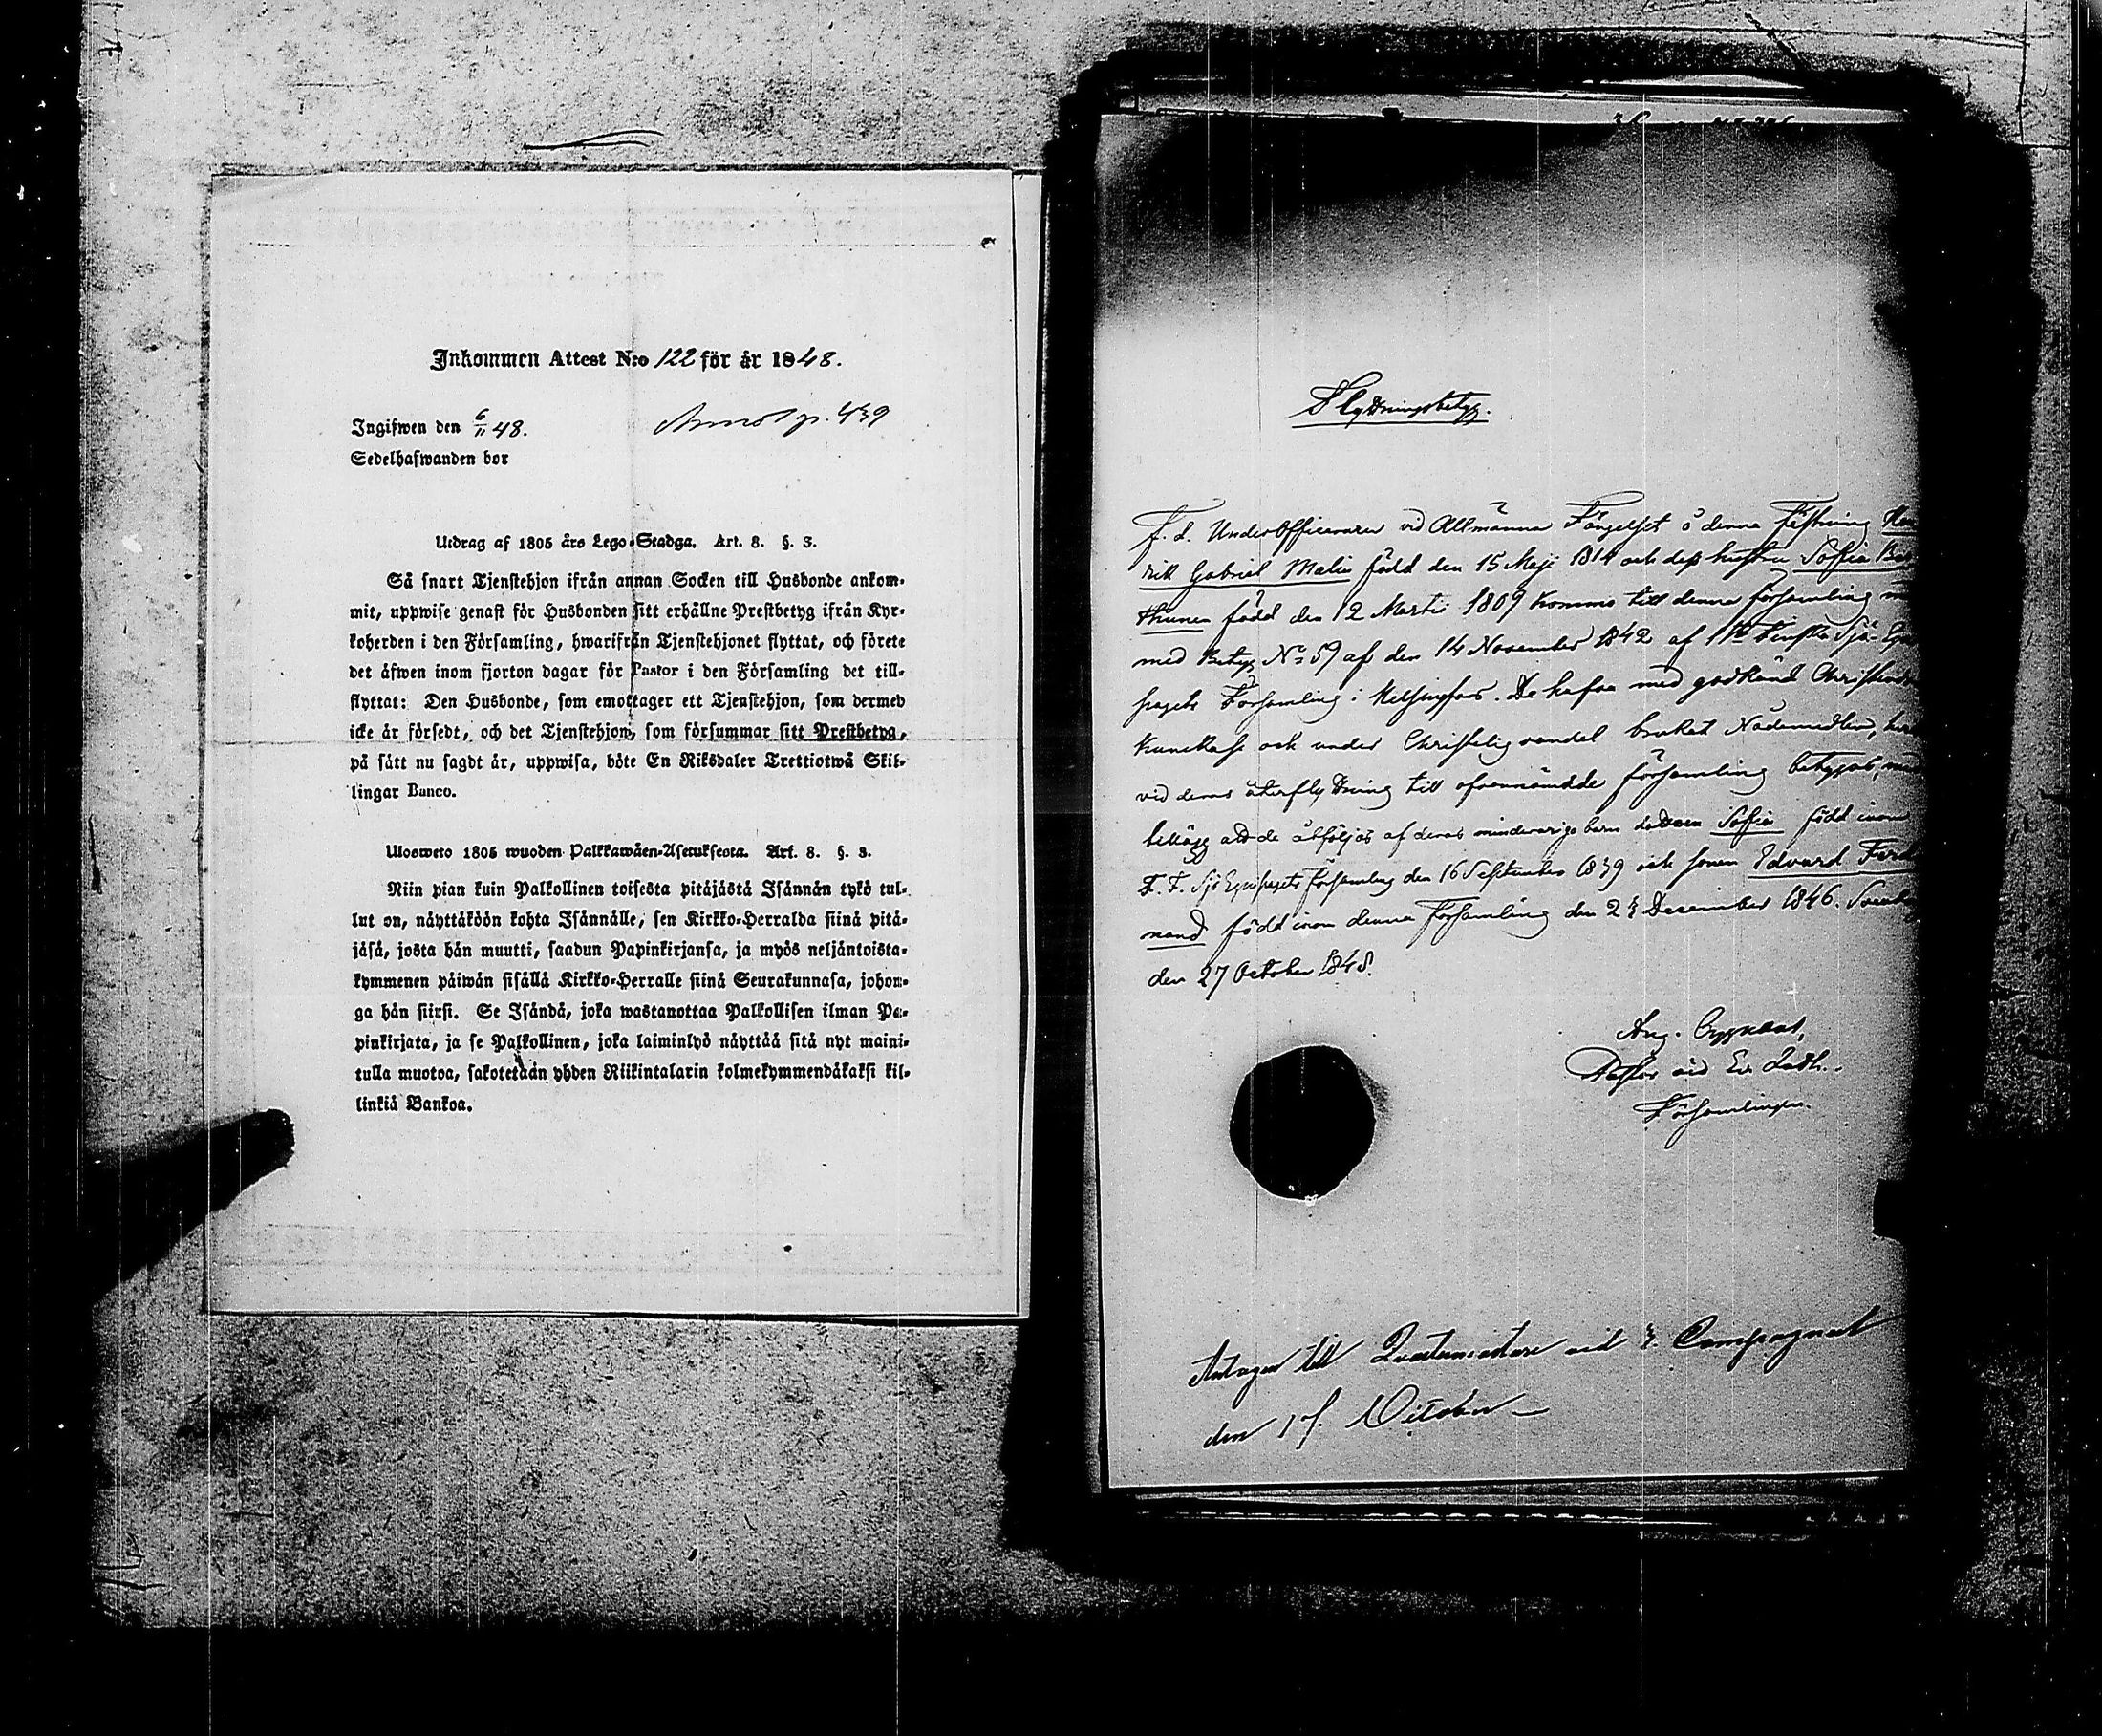 Inkommen Attest N:o 122 för år 1848.
Ingifwen den 6/11 48.
p. 439
Sedelhafwanden bor
Utdrag af 1805 års Lego-Stadga. Art. 8. §. 3.
Så snart Tjenstehjon ifrån annan Socken till Husbonde ankom-
mit, uppwise genast för Husbonden sitt erhållne Prestbetyg ifrån Kyr-
koherden i den Församling, hwarifrån Tjenstehjonet flyttat, och förete
det äfwen inom fjorton dagar för Pastor i den Församling det till-
flyttat: Den Husbonde, som emottager ett Tjenstehjon, som dermed
icke är försedt, och det Tjenstehjon, som försummar sitt Prestbetyg,
på sätt nu sagdt är, uppwisa, böte En Riksdaler Trettiotwå Skil-
lingar Banco.
Ulosweto 1805 wuoden Palkkawäen-Asetuksesta. Art. 8. §. 3.
Niin pian kuin Palkollinen toisesta pitäjästä Isännän tykö tul-
lut on, näyttäköön kohta Isännälle, sen Kirkko-Herralda siinä pitä-
jäsä, josta hän muutti, saadun Papinkirjansa, ja myös neljäntoista-
kymmenen päiwän sisällä Kirkko-Herralle siinä Seurakunnasa, johon-
ga hän siirsi. Se Isändä, joka wastanottaa Palkollisen ilman Pa-
pinkirjata, ja se Palkollinen, joka laiminlyö näyttää sitä nyt maini-
tulla muotoa, sakotetaan yhden Riikintalarin kolmekymmendäkaksi kil-
linkiä Bankoa.
Flyttningsbetyg.
F. d. Underofficeraren vid Allmänna Fängelset å denna fästning Hen
rik Gabriel Malin född den 15 Maji 1814 och dess hustru Sofia
Thunen född den 12 Martii 1809 kommo till denna församling
med Betyg No 59 af den 14 November 1842 af 1sta Finska Sjö-Equi
pagets Församling i Helsingfors. De hafva med godkänd Christendoms
kunskap och under Christelig vandel brukat Nådemedlen,
vid deras återflyttning till ofvannämdde församling betygas, med
tillägg att de åtföljas af deras minderåriga barn dottren Sofia född inom
F. F. Sjö Equipagets församling den 16 September 1839 och sonen Edvard Ferdi
nand född inom denna Församling den December 1846.
den 27 October 1848.
Aug. Cygnæus,
Pastor vid Ev. Luth.
Församlingen.
Antagen till Qvartermästare vid Compagniet
den 17. October